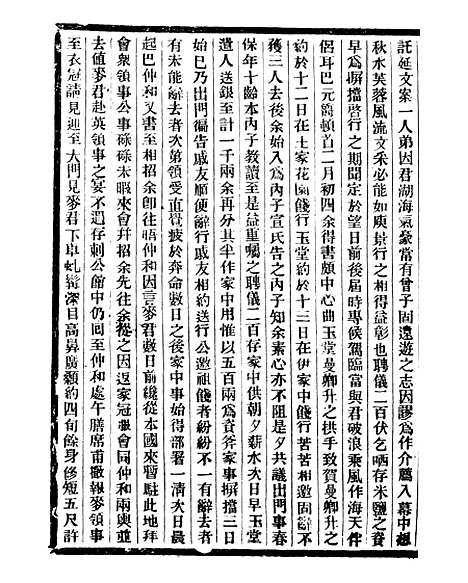 託延文案一人弟因君湖海氣豪當有曾子固遠遊之志因謬爲作介薦入幕中想
秋水芙蓉風流文采必能如庾景行之相得益彰也聘儀二百伏乞哂存米鹽之資
早爲摒擋啓行之期聞定於望日前後屆時專候駕臨當與君破浪乘風作海天伴
侶耳巴元鬯頓首二月初四余得書頗中心曲玉堂曼卿升之拱手致賀曼卿升之
約於十二日在王家花園餞行玉堂約於十三日在伊家中餞行苦苦相邀固辭不
獲三人去後余始入爲內子宣氏告之內子知余素心亦不阻是夕共議出門事春
保年十齡本內子教讀至是益重囑之聘儀二百存家中供朝夕薪水次日早玉堂
遣人送銀至計一千兩余再分其半作家中用惟以五百兩爲資斧家事摒擋三日
始已乃出門徧告戚友順便辭行戚友相約送行公邀祖餞者紛紛不一有辭去者
有未能辭去者次第領受直覺疲於奔命數日之後家中事始得部署一清次日晨
起巴仲和又書至相招余卽往晤仲和因言麥君數日前纔從本國來暫駐此地拜
會衆領事公事碌碌未暇來會幷招余先往余從之因返家冠服會同仲和兩輿並
去值麥君赴英領事之宴不遇存刺公館中仍回至仲和處午膳席甫撤報麥領事
至衣冠請見迎至大門見麥君下車虬髯深目高鼻廣顙約四旬餘身修短五尺許